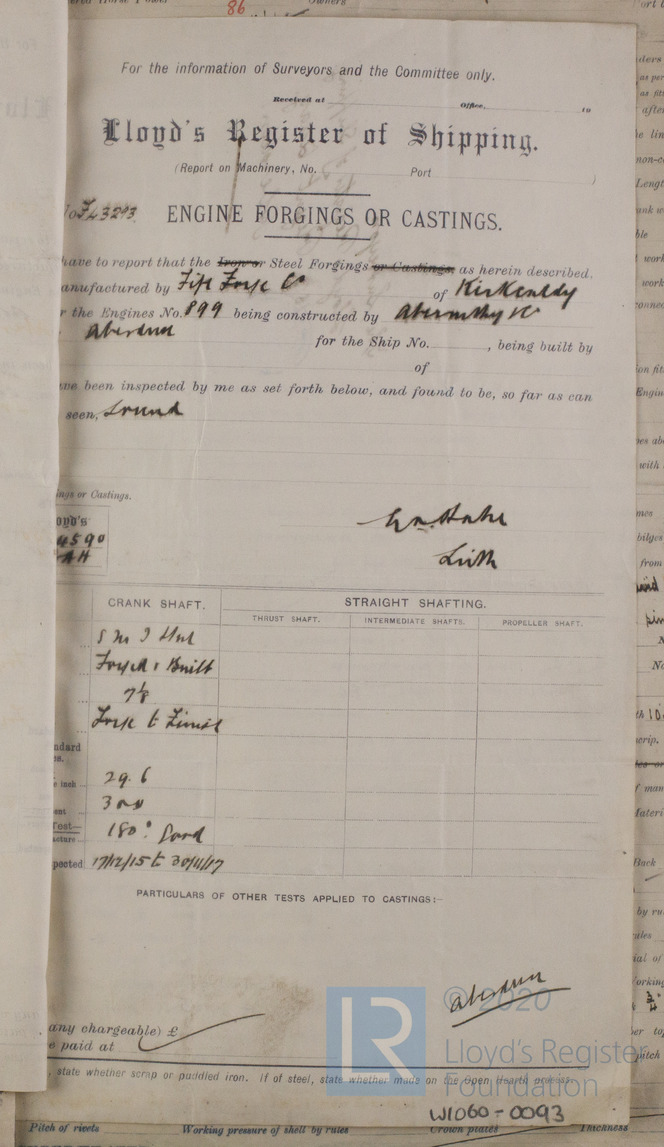 86
For the information of Surveyors and the Committee only.
Received at Office, 19
Lloyd's Register of Shipping.
(Report on Machinery, No. Port )
No F43293 ENGINE FORGINGS OR CASTINGS.
have to report that the Iron or Steel Forgings or Castings, as herein described,
anufactured by Fife Forge Co of Kirkcaldy
r the Engines No. 899 being constructed by Abernethy & Co
Aberdeen for the Ship No. , being built by
of
ve been inspected by me as set forth below, and found to be, so far as can
seen, Sound
ngs or Castings.
oyd's
4590
AH
Leith
CRANK SHAFT. STRAIGHT SHAFTING.
THRUST SHAFT. INTERMEDIATE SHAFTS. PROPELLER SHAFT.
S M I Steel
Forged & Built
7⅛
Forge to Finish
ndard
29.6
e inch
ent
Test—
180° Good
acture
pected 17/12/15 to 30/11/17
PARTICULARS OF OTHER TESTS APPLIED TO CASTINGS:—
Aberdeen
any chargeable) £
e paid at
, state whether scrap or puddled iron. If of steel, state whether made on the Open Hearth process.
© 2020
LR
Lloyd's Register
Foundation
W1060-0093
Pitch of rivets Working pressure of shell by rules Crown plates Thickness